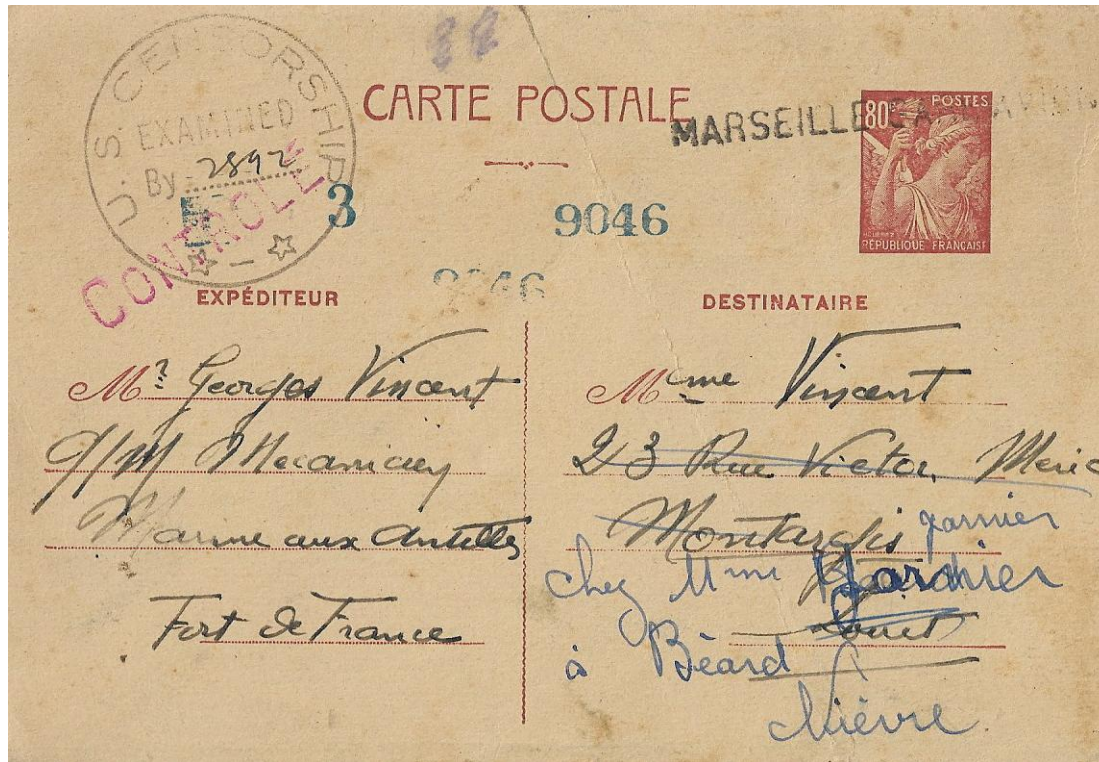 U.S. CENSORSHIP
EXAMINED
By 2892
CONTROLE
88
CARTE POSTALE
MARSEILLE GARE AVION
80c POSTES
RÉPUBLIQUE FRANÇAISE
3
9046
9046
EXPÉDITEUR
Mr Georges Vincent
Q/M Mecanicien
Marine aux Antilles
Fort de France
DESTINATAIRE
Mme Vincent
23 Rue Victor Meric
Montargis
garnier
chez Mme Garnier
Loiret
à Béard
Nièvre